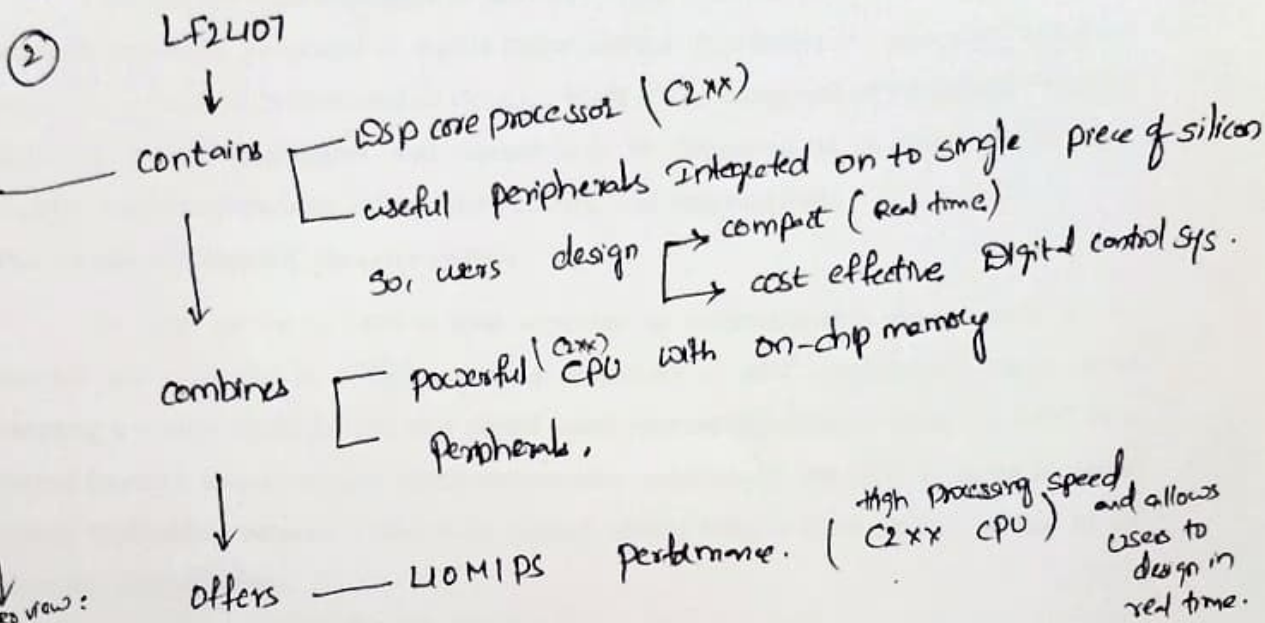 ② LF2407
contains
Dsp core processor (C2xx)
useful peripherals Integrated on to single piece of silicon
So, users design compact (Real time)
cost effective Digital control sys.
combines
powerful (C2xx) CPU with on-chip memory
Peripherals.
offers — 40 MIPS performance. (High processing speed C2xx CPU) and allows
user to
design in
real time.
view: